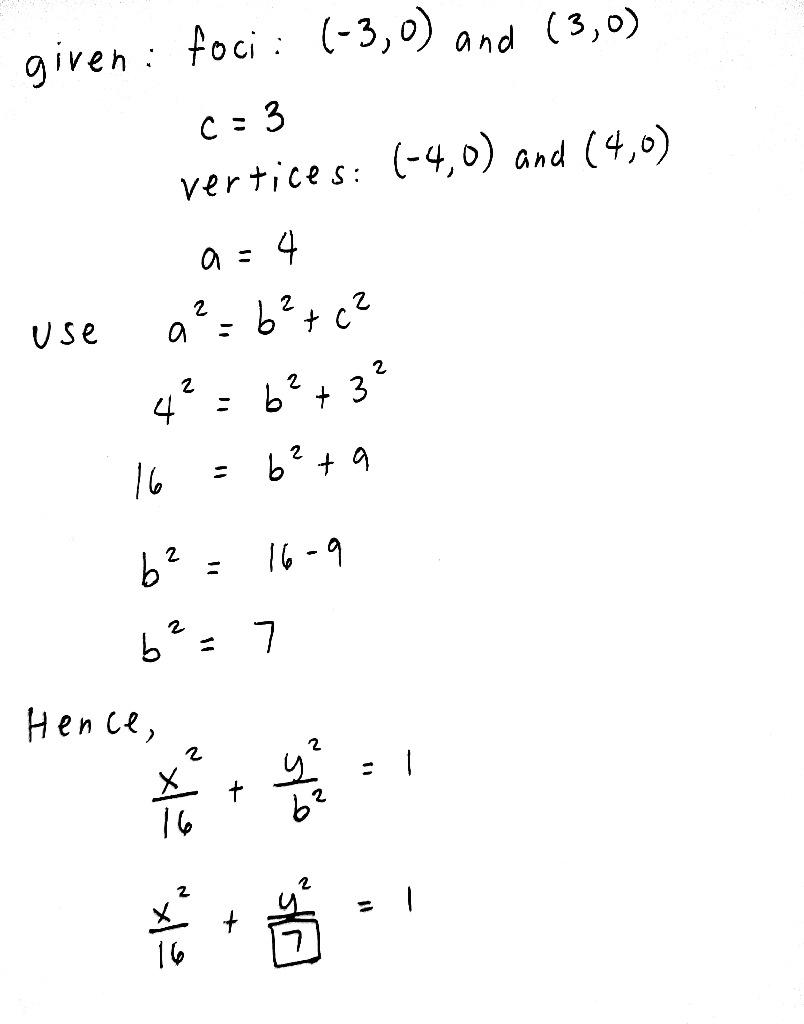 given: foci: (-3,0) and (3,0)
c = 3
vertices: (-4,0) and (4,0)
a = 4
use a² = b² + c²
4² = b² + 3²
16 = b² + 9
b² = 16 - 9
b² = 7
Hence,
x²/16 + y²/b² = 1
x²/16 + y²/7 = 1